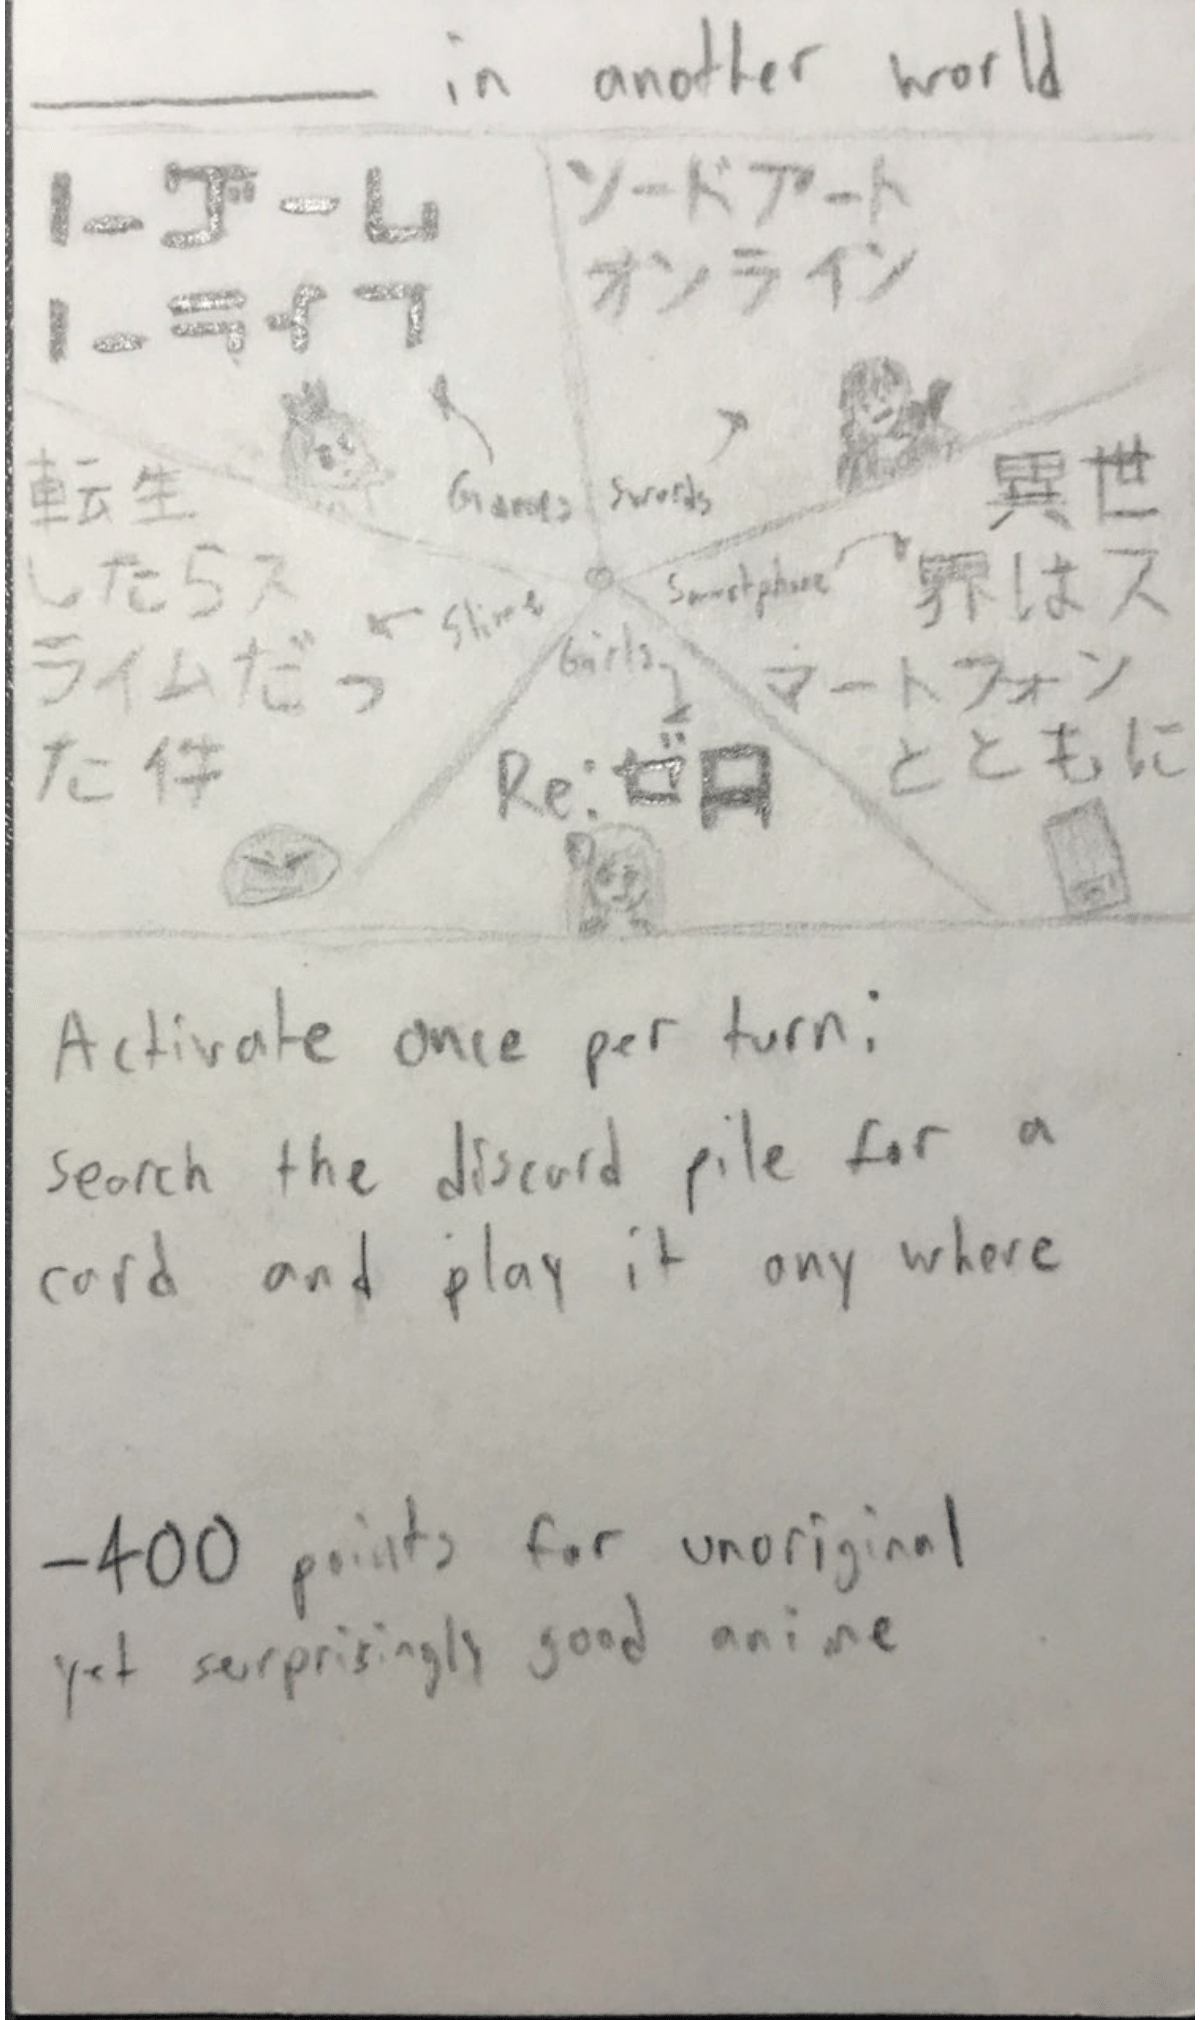 ________ in another world
ノーゲーム
ノーライフ
ソードアート
オンライン
Games
Swords
転生
したらス
ライムだっ
た件
Slime
Smartphone
異世
界はス
マートフォン
とともに
Girls
Re:ゼロ
Activate once per turn:
search the discard pile for a
card and play it any where
-400 points for unoriginal
yet surprisingly good anime